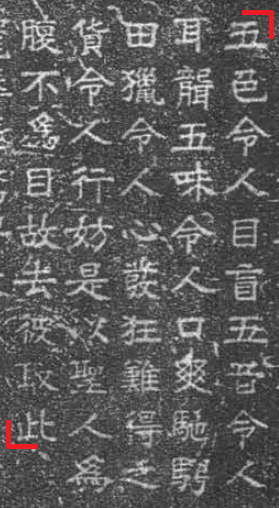 五色令人目盲五音令人
耳聾五味令人口爽馳騁
田獵令人心發狂難得之
貨令人行妨是以聖人為
腹不為目故去彼取此